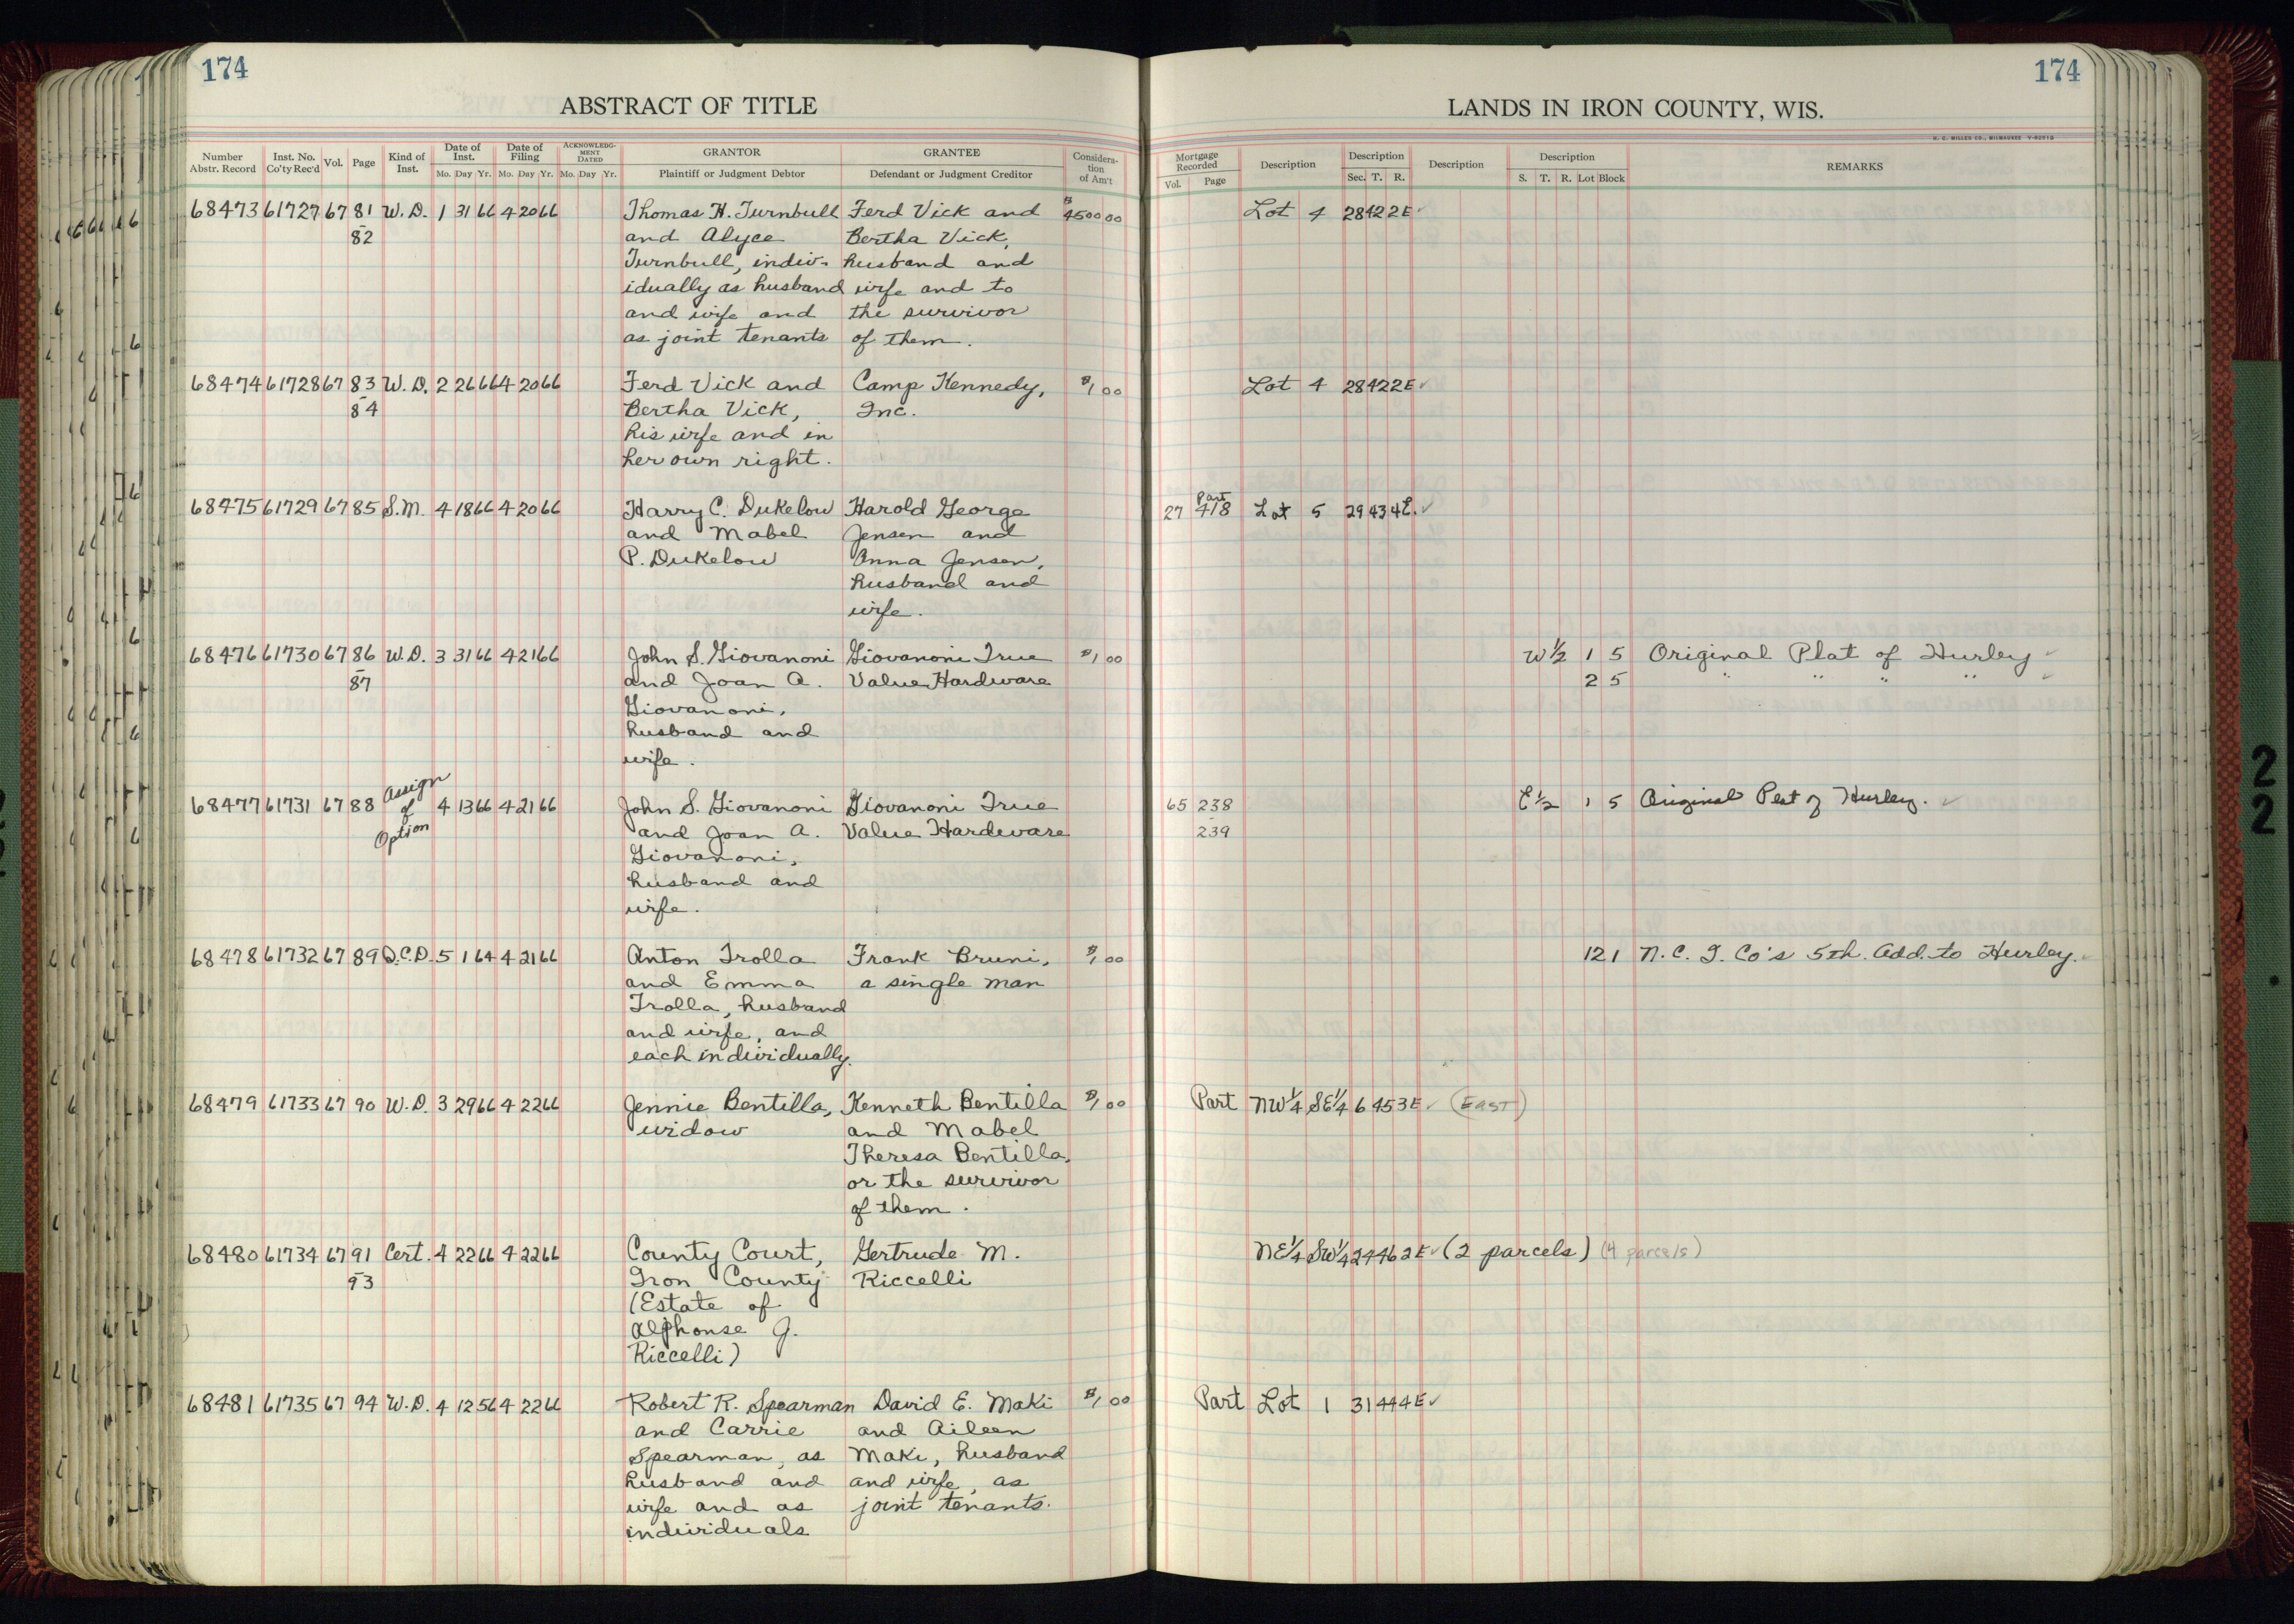 174
174
ABSTRACT OF TITLE
LANDS IN IRON COUNTY, WIS.
H. C. MILLER CO., MILWAUKEE
Number Abstr. Record Inst. No. Co'ty Rec'd Vol. Page Kind of Inst. Date of Inst. Mo. Day Yr. Date of Filing Mo. Day Yr. ACKNOWLEDGMENT DATED Mo. Day Yr. GRANTOR Plaintiff or Judgment Debtor GRANTEE Defendant or Judgment Creditor Consideration of Am't
Mortgage Recorded Vol. Page Description Description Sec. T. R. Description Description S. T. R. Lot Block REMARKS
68473 61727 67 81 W. D. 1 31 66 4 20 66 Thomas H. Turnbull Ferd Vick and $4500 00 Lot 4 28 42 2E
82 and Alyce Bertha Vick,
Turnbull, indiv- husband and
idually as husband wife and to
and wife and the survivor
as joint tenants of them.
68474 61728 67 83 W. D. 2 26 66 4 20 66 Ferd Vick and Camp Kennedy, $1 00 Lot 4 28 42 2E
84 Bertha Vick, Inc.
his wife and in
her own right.
68475 61729 67 85 S.M. 4 18 66 4 20 66 Harry C. Dukelow Harold George 27 Part 418 Lot 5 29 43 4E.
and Mabel Jensen and
P. Dukelow Anna Jensen,
husband and
wife.
68476 61730 67 86 W. D. 3 31 66 4 21 66 John S. Giovanoni Giovanoni True $1 00 W½ 1 5 Original Plat of Hurley
87 and Joan A. Value Hardware 2 5 " " " "
Giovanoni,
husband and
wife.
68477 61731 67 88 Assign of Option 4 13 66 4 21 66 John S. Giovanoni Giovanoni True 65 238 E½ 1 5 Original Plat of Hurley.
and Joan A. Value Hardware 239
Giovanoni,
husband and
wife.
68478 61732 67 89 Q.C.D. 5 1 64 4 21 66 Anton Trolla Frank Bruni, $1 00 12 1 N. C. I. Co's 5th. Add. to Hurley.
and Emma a single man
Trolla, husband
and wife, and
each individually.
68479 61733 67 90 W. D. 3 29 66 4 22 66 Jennie Bentilla, Kenneth Bentilla $1 00 Part NW¼ SE¼ 6 45 3E (EAST)
widow and Mabel
Theresa Bentilla,
or the survivor
of them.
68480 61734 67 91 Cert. 4 22 66 4 22 66 County Court, Gertrude M. NE¼ SW¼ 24 46 2E (2 parcels) (4 parcels)
93 Iron County Riccelli
(Estate of
Alphonse J.
Riccelli)
68481 61735 67 94 W. D. 4 12 56 4 22 66 Robert R. Spearman David E. Maki $1 00 Part Lot 1 31 44 4E
and Carrie and Aileen
Spearman, as Maki, husband
husband and and wife, as
wife and as joint tenants.
individuals